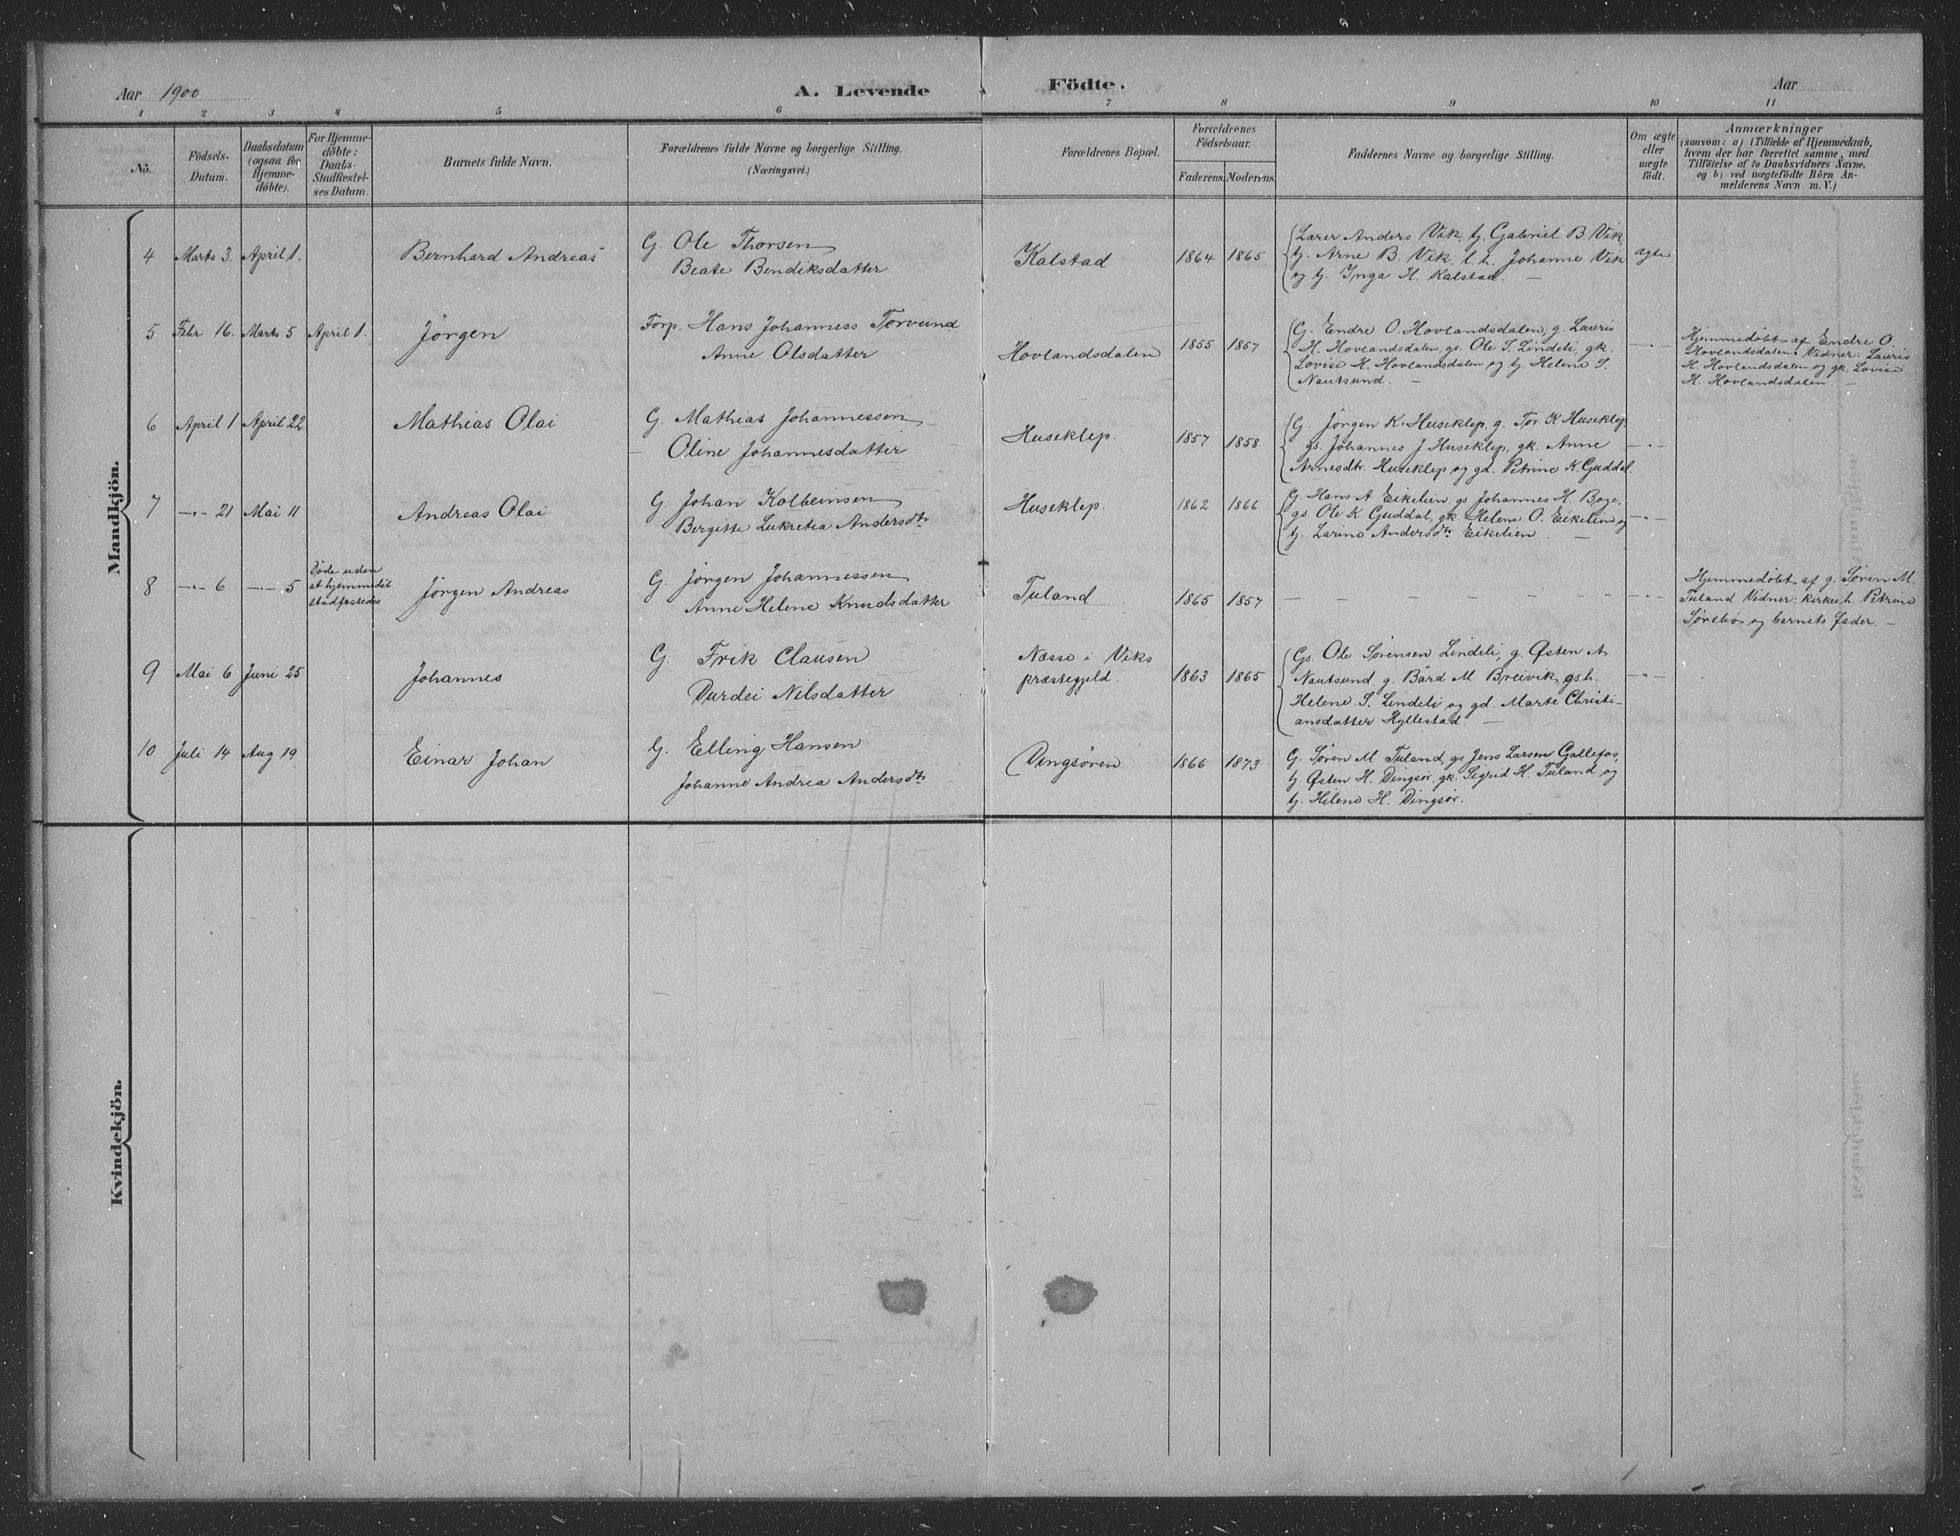 Aar 1900
A. Levende Födte.
Aar
1 2 3 4 5 6 7 8 9 10 11
No.
Födsels-Datum.
Daabsdatum (ogsaa for Hjemme-döbte).
For Hjemme-döbte: Daabs-Stadfæstel-ses Datum.
Barnets fulde Navn.
Forældrenes fulde Navne og borgerlige Stilling.
(Næringsvei.)
Forældrenes Bopæl.
Forældrenes Födselsaar.
Faderens. Moderens.
Faddernes Navne og borgerlige Stilling.
Om ægte eller uægte födt.
Anmærkninger
(saasom: a) i Tilfælde af Hjemmedaab,
hvem der har forrettet samme, med
Tilföielse af to Daabsvidners Navne,
og b) ved uægtefödte Börn An-
melderens Navn m. V.)
Mandkjön.
4 Marts 3. April 1. Bernhard Andreas
G. Ole Thorsen
Beate Bendiksdatter
Kalstad 1864 1865
Lærer Anders Vik, tj. Gabriel B. Vik,
tj. Arne B. Vik, l.h. Johanne Vik
og tj. Inga H. Kalstad. —
ægte
5 Febr 16. Marts 5 April 1. Jørgen
Forp. Hans Johanness Torvund
Anne Olsdatter
Hovlandsdalen 1855 1857
G. Endre O. Hovlandsdalen, g. Lauris
H. Hovlandsdalen, gs. Ole S. Lindeli, gk.
Lovise H. Hovlandsdalen og tj. Helene S.
Nautsund. —
—"—
Hjemmedøbt af Endre O.
Hovlandsdalen. Vidner: Lauris
H. Hovlandsdalen og gk. Lovise
H. Hovlandsdalen. —
6 April 1 April 22 Mathias Olai
G. Mathias Johannessen
Oline Johannesdatter
Huseklep. 1857 1858
G. Jørgen K. Huseklep, g. Tor K Huseklep,
gs. Johannes J Huseklep, gk. Anne
Arnesdtr. Huseklep og gd. Petrine K. Guddal.
—"—
7 —"— 21 Mai 11 Andreas Olai
G. Johan Kolbeinsen
Bergitte Lukretia Andersdtr
Huseklep. 1862 1866
G. Hans A Eikelien, gs Johannes H. Bøge,
gs. Ole K Guddal, gk. Helene O. Eikelien og
tj. Larine Andersdtr Eikelien. —
—"—
8 —"— 6 —"— 5
Døde uden
at hjemmedåb
stadfæstedes
Jørgen Andreas
G. Jørgen Johannessen
Anne Helene Knudsdatter
Tuland 1865 1857
— — — — — — — —
Hjemmedøbt af g. Søren M.
Tuland Vidner: kirkes.h. Petrine
Sørebø og barnets fader. —
9 Mai 6 Juni 25 Johannes
G. Frik Clausen
Durdei Nilsdatter
Næsse i Viks
præstegjeld. 1863 1865
Gs. Ole Sørensen Lindeli, g. Østen A
Nautsund, g. Bård M Breivik, gs.h.
Helene S. Lindeli og gd. Marte Christi-
ansdatter Hyllestad. —
—"—
10 Juli 14 Aug 19 Einar Johan
G. Elling Hansen
Johanne Andrea Andersdtr
Dingsören 1866 1873
G. Søren M Tuland, gs Jens Larsen Gallefos,
tj Østen H. Dingsør, gk. Sigrid H. Tuland og
tj. Helene H. Dingsør.
Kvindekjön.